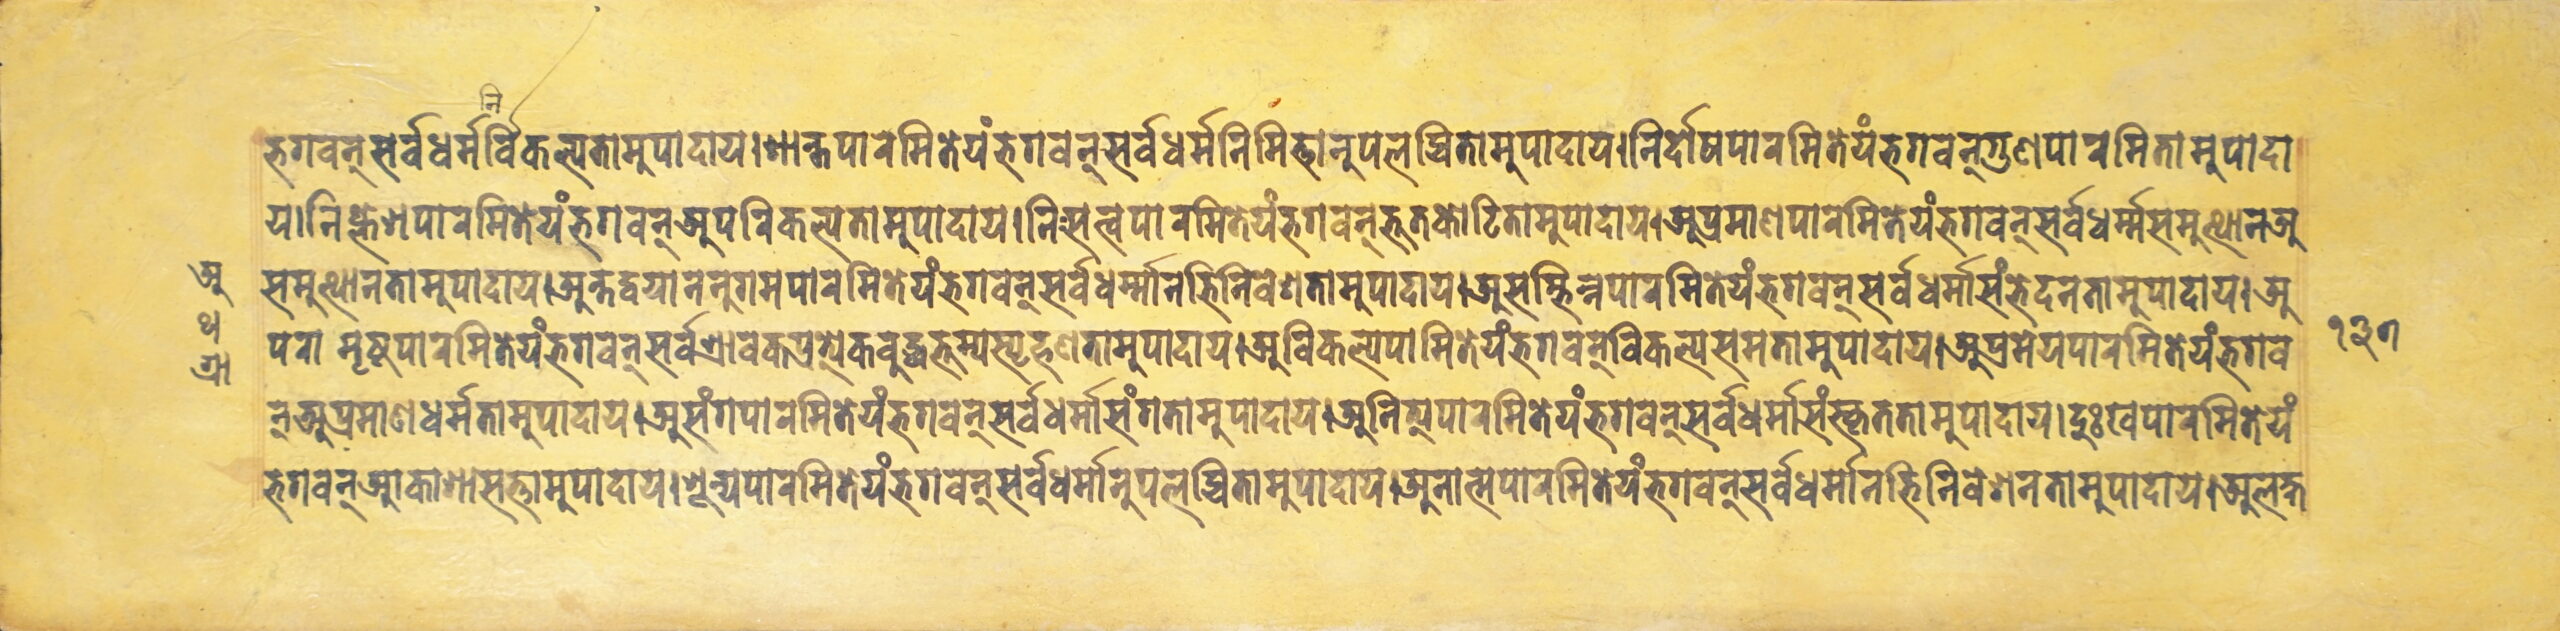 नि
भगवन्सर्वधर्मर्विकल्पतामुपादाय।शान्तपारमितेयंभगवन्सर्वधर्मनिमित्तानुपलब्धितामुपादाय।निर्दोषपारमितेयंभगवन्गुणपारमितामुपादा
य।निष्क्लेशपारमितेयंभगवन्अपरिकल्पतामुपादाय।निःसत्त्वपारमितेयंभगवन्भूतकोटितामुपादाय।अप्रमाणपारमितेयंभगवन्सर्वधर्म्मसमुत्थानअ
समुत्थानतामुपादाय।अन्तद्वयाननुगमपारमितेयंभगवन्सर्वधर्म्मानभिनिवेशतामुपादाय।असम्भिन्नपारमितेयंभगवन्सर्वधर्मासंभेदनतामुपादाय।अ
परामृष्टपारमितेयंभगवन्सर्वश्रावकप्रत्येकबुद्धभूम्यस्पृहणतामुपादाय।अविकल्पपामितेयंभगवन्विकल्पसमतामुपादाय।अप्रमेयपारमितेयंभगव
न्अप्रमाणधर्मतामुपादाय।असंगपारमितेयंभगवन्सर्वधर्मासंगतामुपादाय।अनित्यपारमितेयंभगवन्सर्वधर्मासंस्कृततामुपादाय।दुःखपारमितेयं
भगवन्आकाशासत्तामुपादाय।शून्यपारमितेयंभगवन्सर्वधर्मानुपलब्धितामुपादाय।अनात्मपारमितेयंभगवन्सर्वधर्मानभिनिवेशनतामुपादाय।अलक्ष
अ
थ
ग्रा
१३७